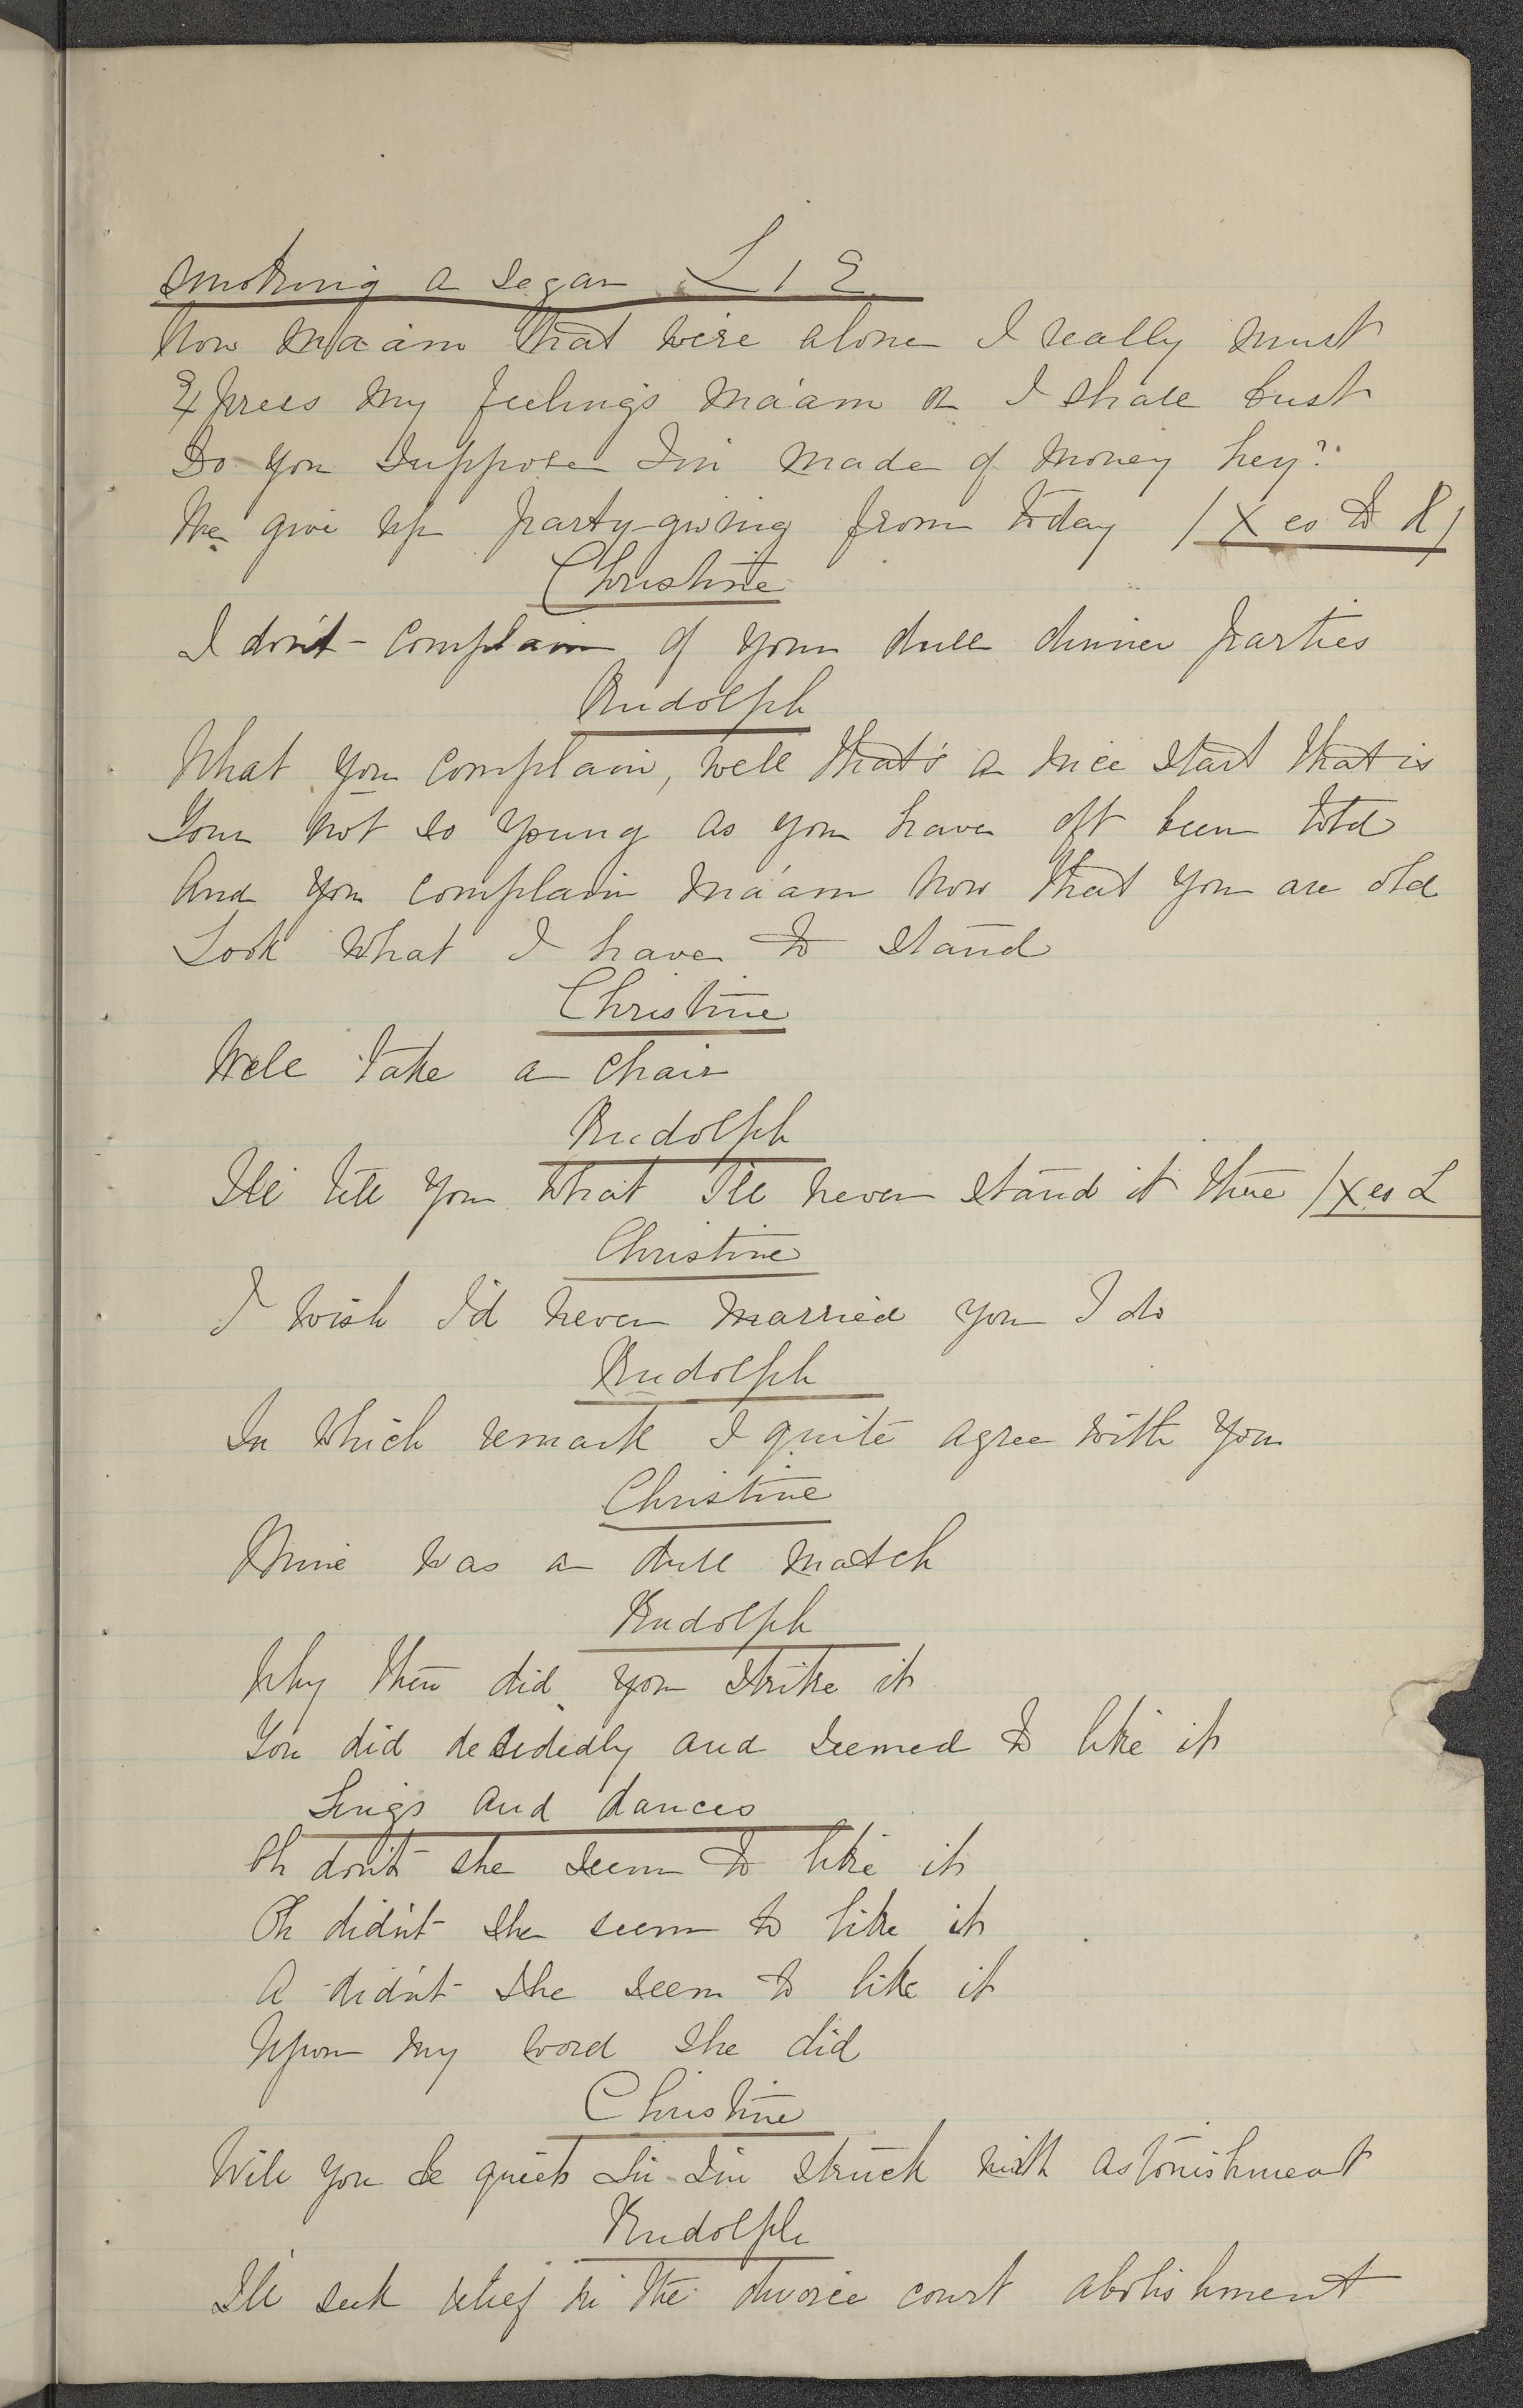 Smoking a Segar L 1 E
Now Ma'am that we're alone I really must
Express my feelings ma'am or I shall bust
Do you Suppose I'm made of money hey?
We give up party-giving from today (X es to R)
Christine
I don't complain of your dull dinner parties
Rudolph
What you complain, well that's a nice start that is
Your not so young as you have oft been told
And you complain ma'am now that you are old
Look what I have to stand
Christine
Well take a chair
Rudolph
I'll tell you what I'll never stand it there (X es L
Christine
I wish I'd never married you I do
Rudolph
In which remark I quite agree with you
Christine
Mine was a dull match
Rudolph
Why then did you strike it
You did decidedly and seemed to like it
Sings and dances
Oh don't she seem to like it
Oh didn't she seem to like it
A didn't she seem to like it
Upon my word she did
Christine
Will you be quiet Sir I'm struck with astonishment
Rudolph
I'll seek relief in the divorce court abolishment